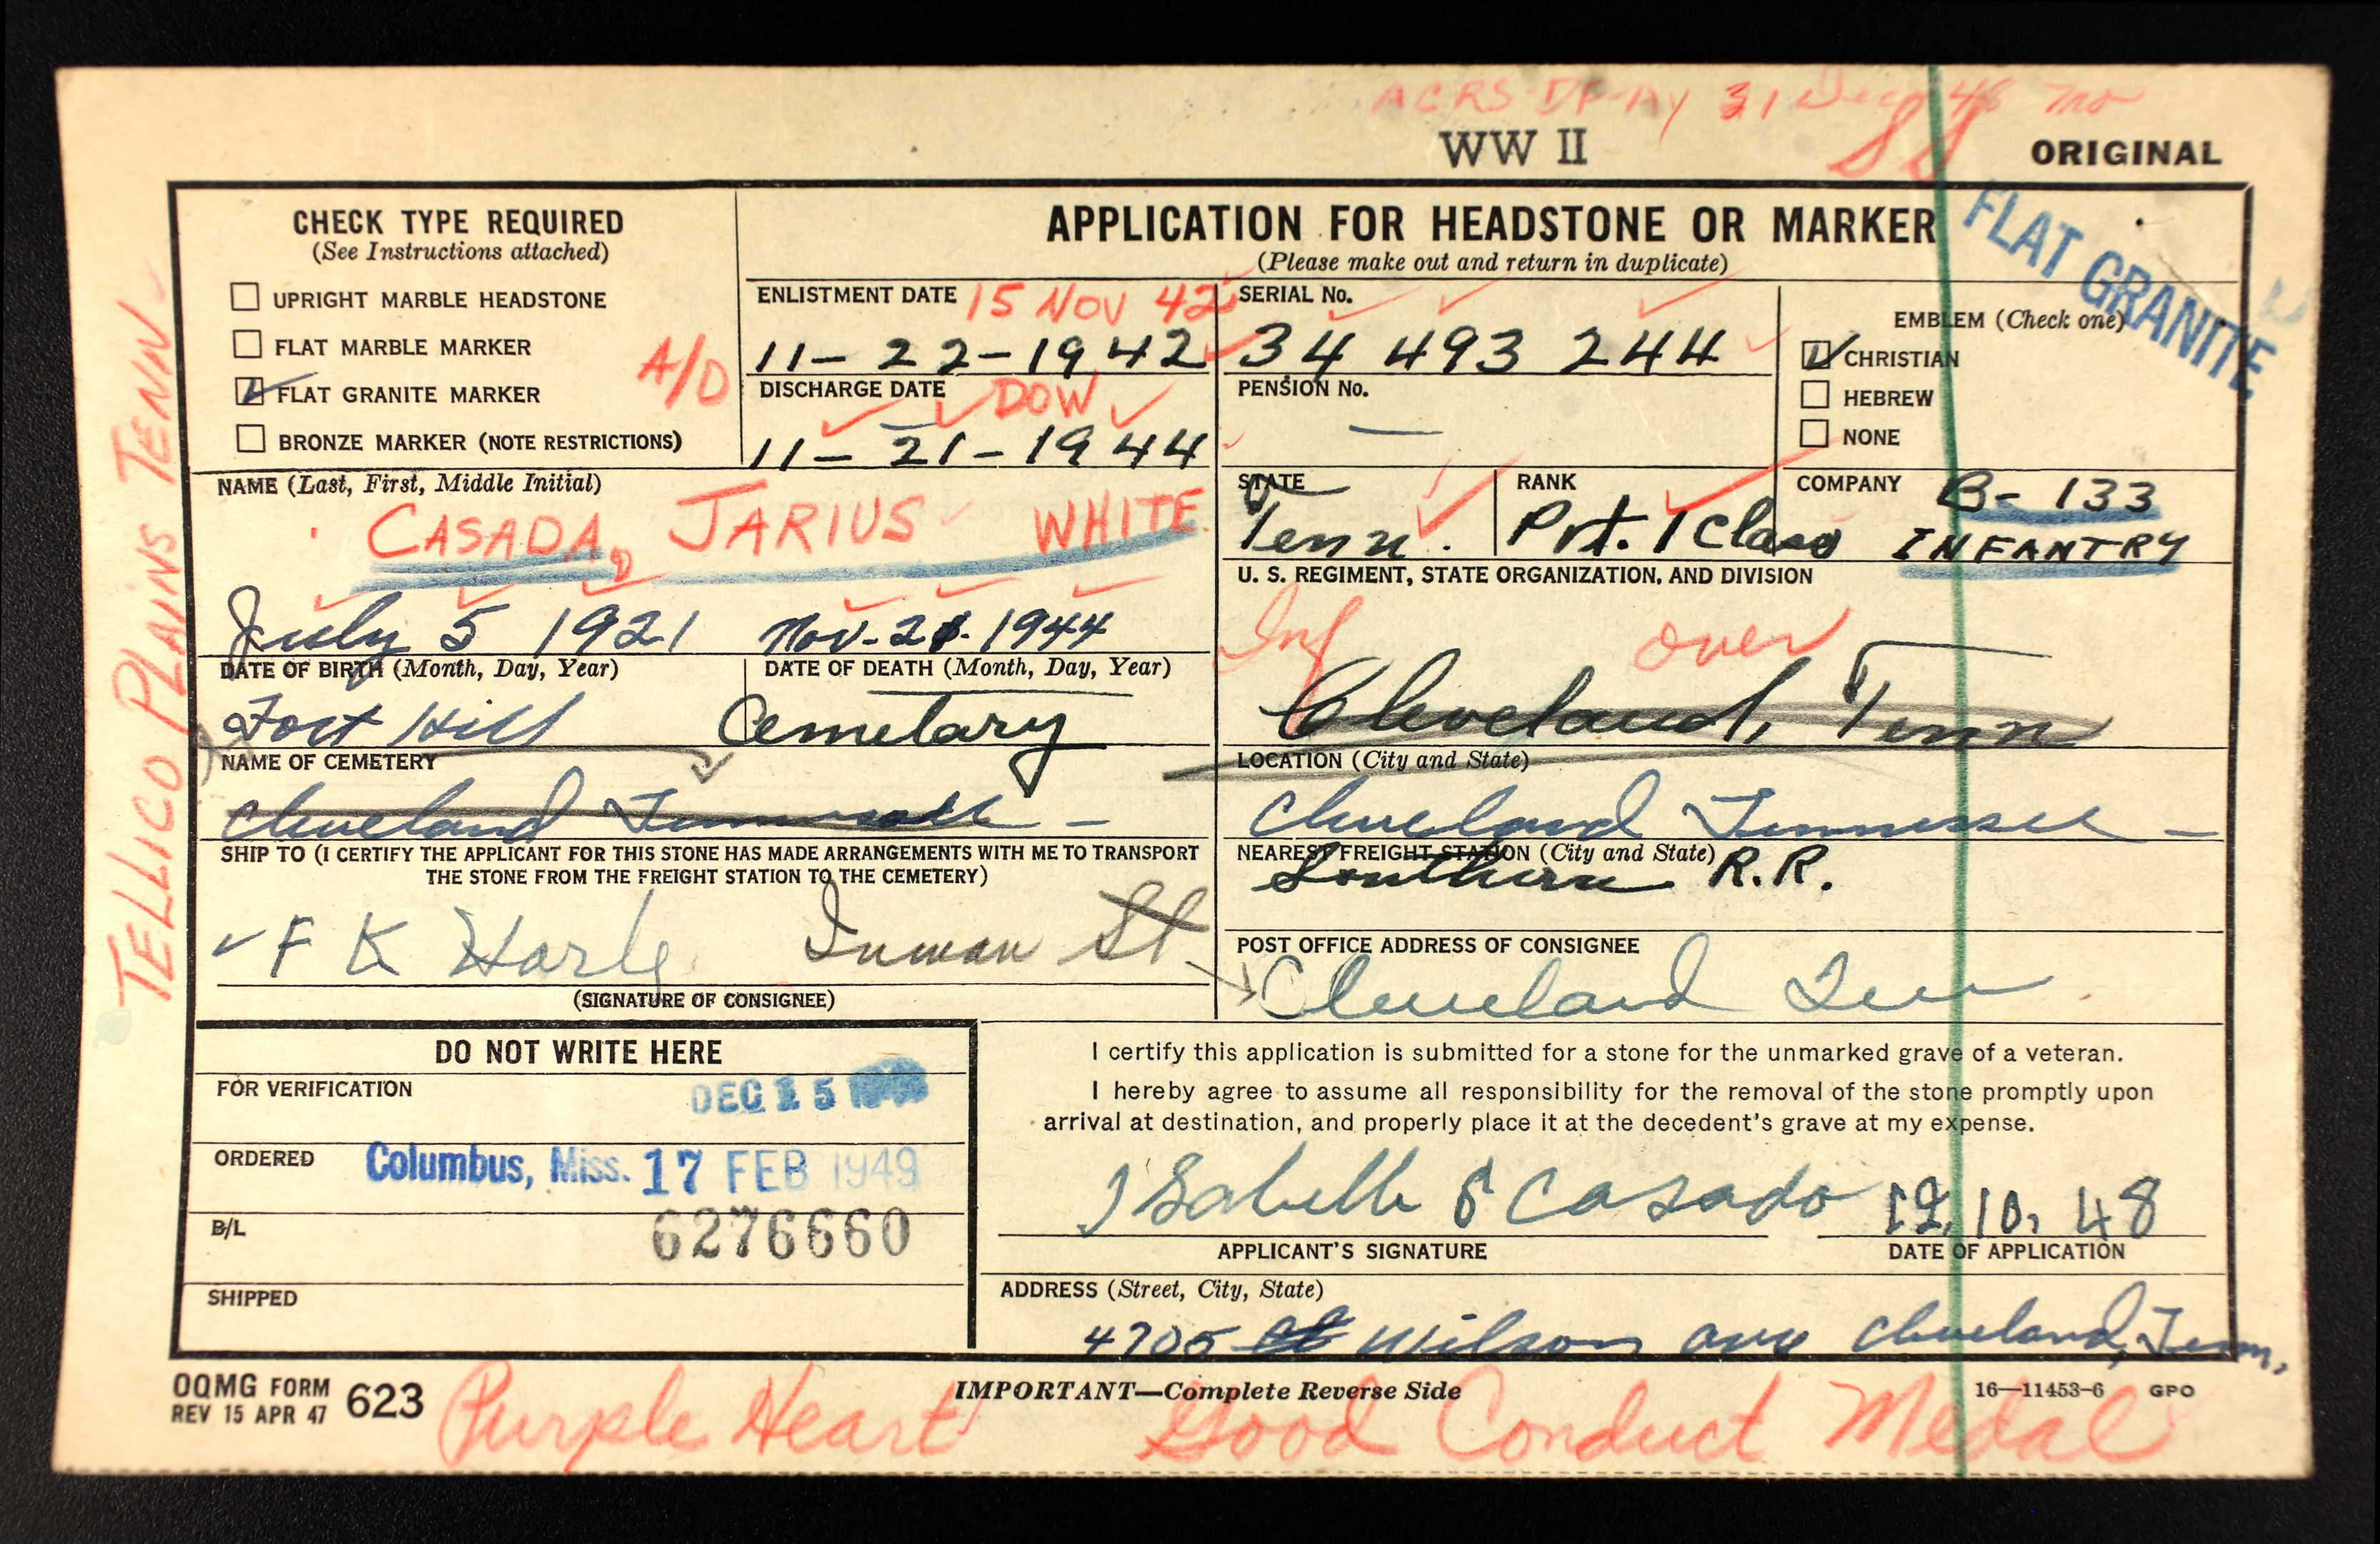 ACRS-DP-A 31 Dec 48 mo
WW II
SS
ORIGINAL
FLAT GRANITE
TELLICO PLAINS TENN
CHECK TYPE REQUIRED
(See Instructions attached)
☐ UPRIGHT MARBLE HEADSTONE
☐ FLAT MARBLE MARKER
☑ FLAT GRANITE MARKER
☐ BRONZE MARKER (NOTE RESTRICTIONS)
A/D
APPLICATION FOR HEADSTONE OR MARKER
(Please make out and return in duplicate)
ENLISTMENT DATE 15 NOV 42
11-22-1942
DISCHARGE DATE DOW
11-21-1944
SERIAL No.
34 493 244
PENSION No.
—
EMBLEM (Check one)
☑ CHRISTIAN
☐ HEBREW
☐ NONE
NAME (Last, First, Middle Initial)
CASADA, JARIUS WHITE
STATE
Tenn.
RANK
Pvt. 1 Class
COMPANY B-133
INFANTRY
U. S. REGIMENT, STATE ORGANIZATION, AND DIVISION
Inf over
July 5 1921 Nov-21-1944
DATE OF BIRTH (Month, Day, Year) DATE OF DEATH (Month, Day, Year)
Fort Hill Cemetary
NAME OF CEMETERY
Cleveland, Tenn
LOCATION (City and State)
Cleveland Tennessee -
SHIP TO (I CERTIFY THE APPLICANT FOR THIS STONE HAS MADE ARRANGEMENTS WITH ME TO TRANSPORT
THE STONE FROM THE FREIGHT STATION TO THE CEMETERY)
Cleveland Tennessee -
NEAREST FREIGHT STATION (City and State)
Southern R.R.
F K Harle Inman St.
(SIGNATURE OF CONSIGNEE)
POST OFFICE ADDRESS OF CONSIGNEE
Cleveland Tenn
DO NOT WRITE HERE
FOR VERIFICATION DEC 15
ORDERED Columbus, Miss. 17 FEB 1949
B/L 6276660
SHIPPED
I certify this application is submitted for a stone for the unmarked grave of a veteran.
I hereby agree to assume all responsibility for the removal of the stone promptly upon
arrival at destination, and properly place it at the decedent's grave at my expense.
Isabelle S Casada 12, 10, 48
APPLICANT'S SIGNATURE DATE OF APPLICATION
ADDRESS (Street, City, State)
4705 Wilson ave Cleveland, Tenn.
OQMG FORM 623
REV 15 APR 47
IMPORTANT—Complete Reverse Side
16—11453-6 GPO
Purple Heart Good Conduct Medal